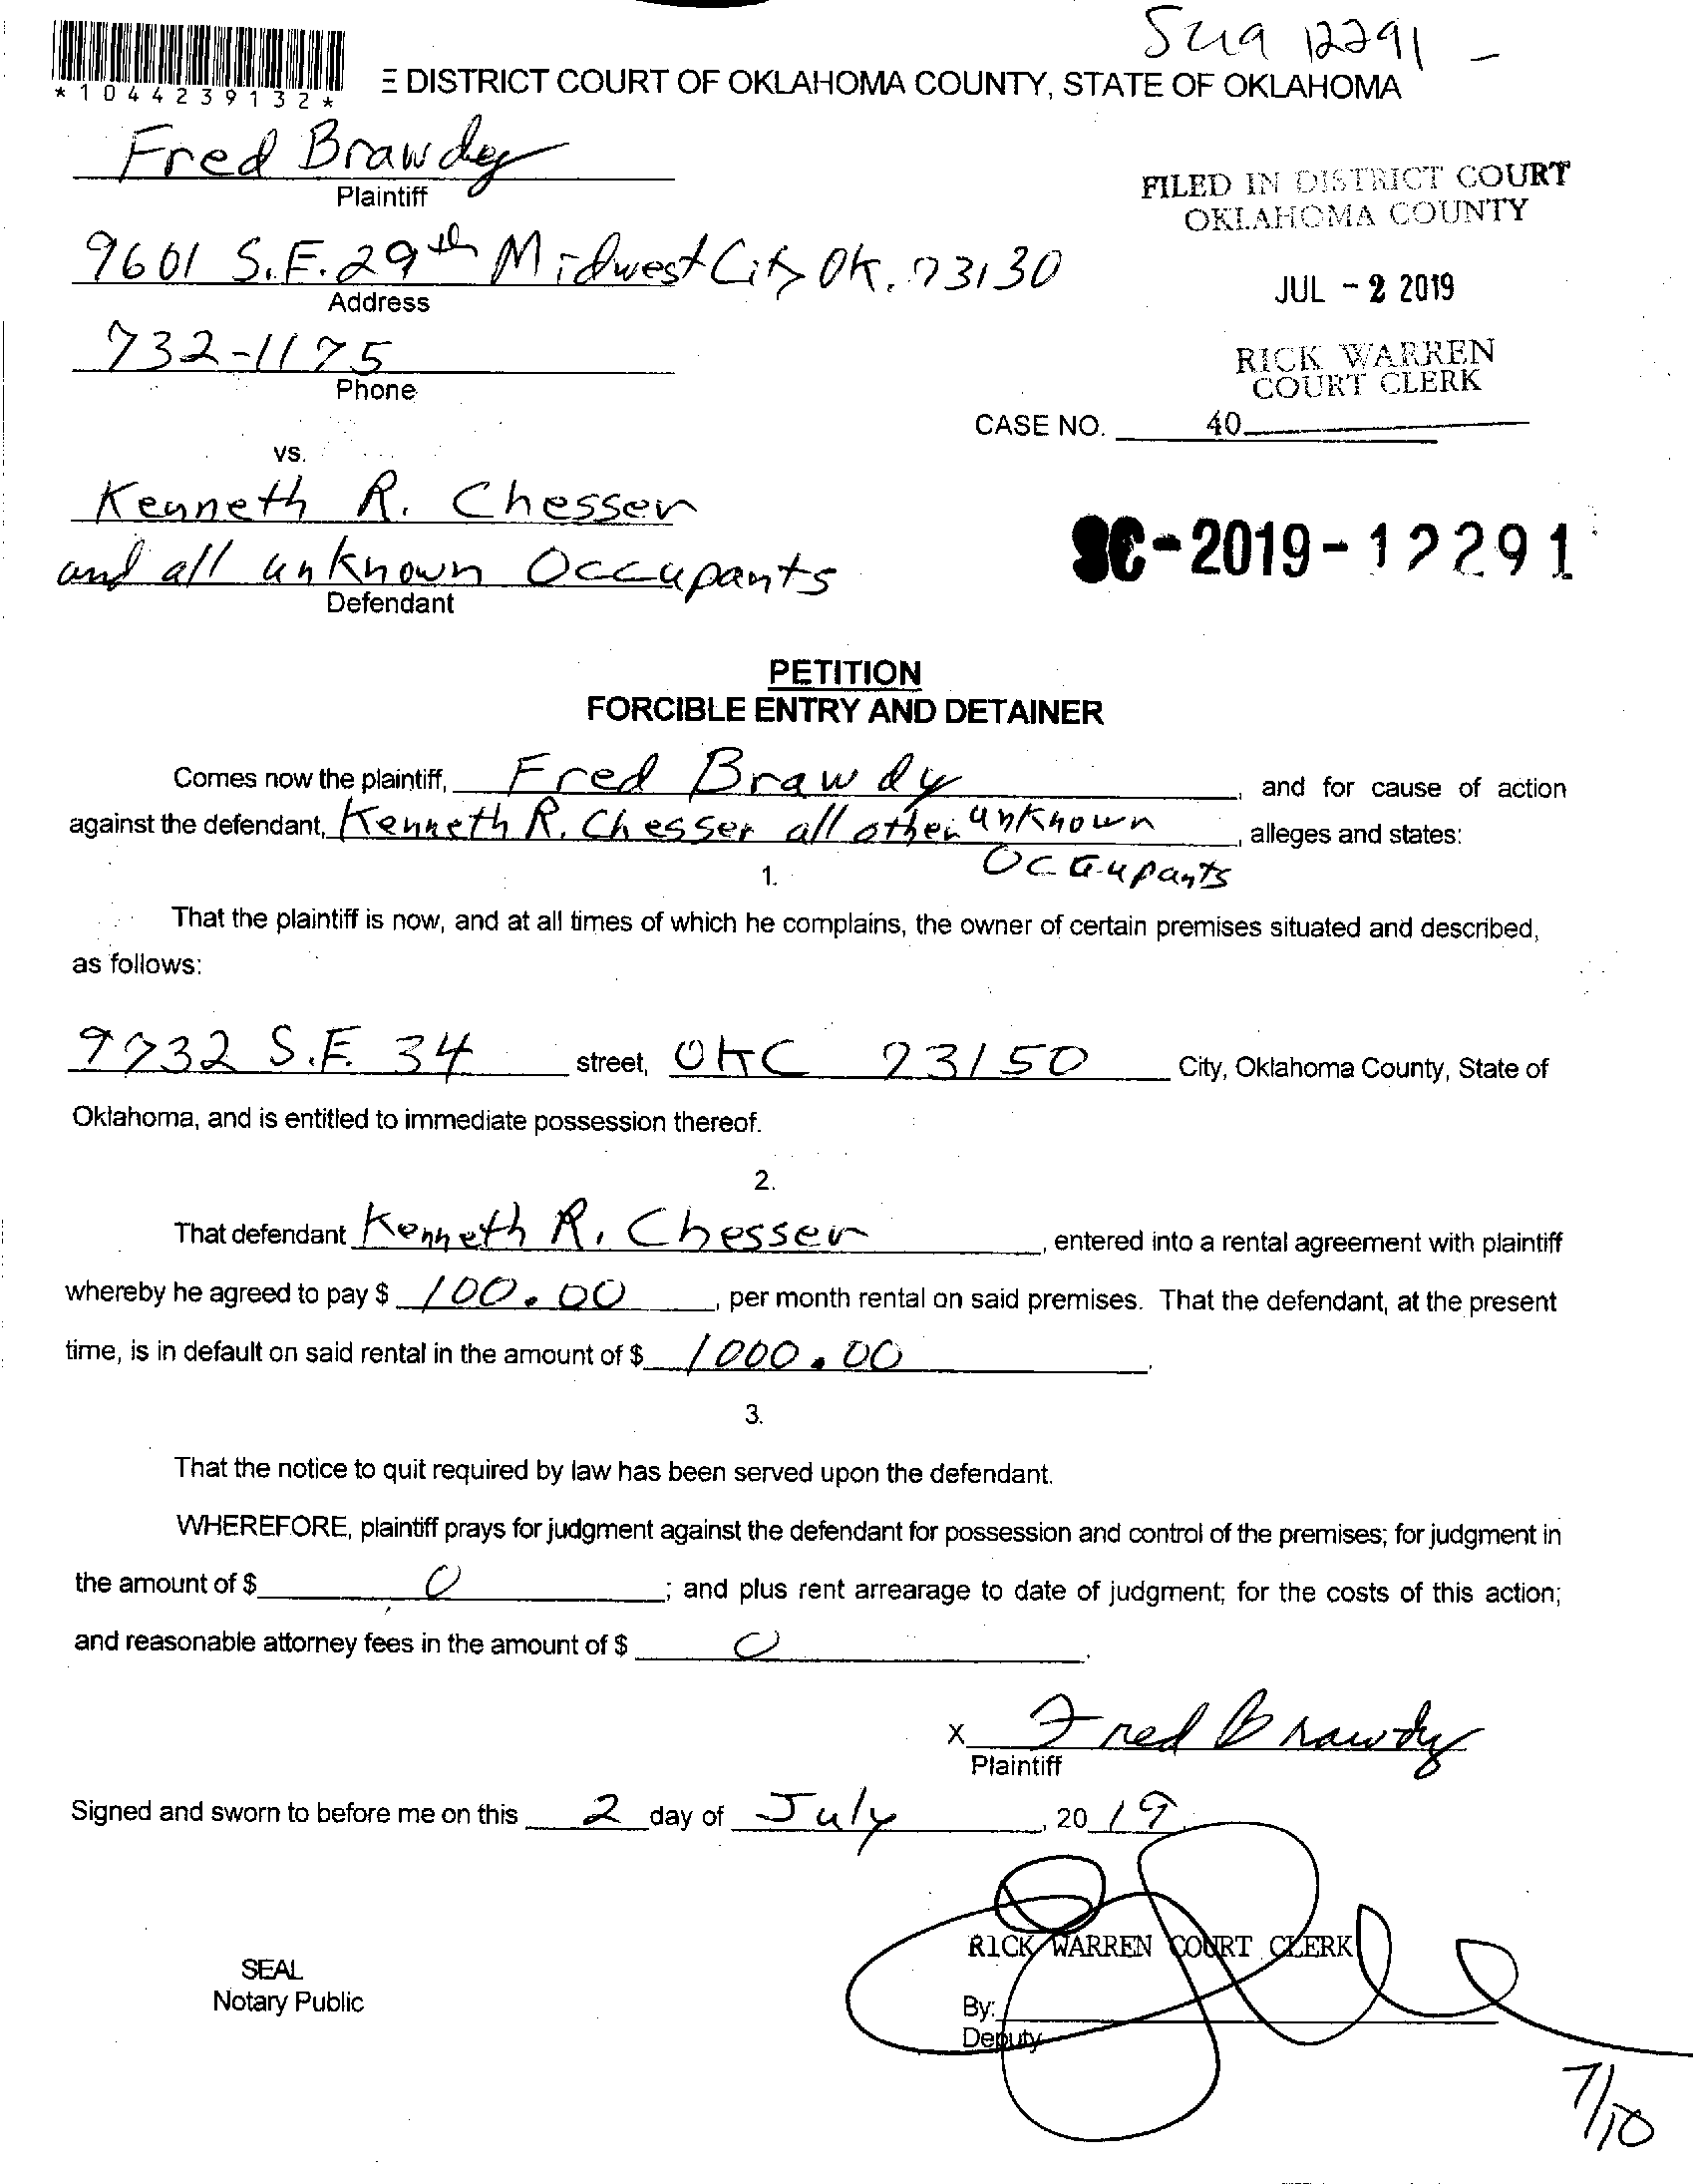 Sug 12291 -
*1044239132*
E DISTRICT COURT OF OKLAHOMA COUNTY, STATE OF OKLAHOMA
Fred Brawdy
Plaintiff
FILED IN DISTRICT COURT
OKLAHOMA COUNTY
9601 S.E. 29th Midwest City OK. 73130
Address
JUL - 2 2019
732-1175
Phone
RICK WARREN
COURT CLERK
CASE NO. 40
vs.
Kenneth R. Chesser
and all unknown Occupants
Defendant
SC-2019-12291
PETITION
FORCIBLE ENTRY AND DETAINER
Comes now the plaintiff, Fred Brawdy, and for cause of action
against the defendant, Kenneth R. Chesser all other unknown, alleges and states:
Occupants
1.
That the plaintiff is now, and at all times of which he complains, the owner of certain premises situated and described,
as follows:
9732 S.E. 34 street, OKC 73150 City, Oklahoma County, State of
Oklahoma, and is entitled to immediate possession thereof.
2.
That defendant Kenneth R. Chesser, entered into a rental agreement with plaintiff
whereby he agreed to pay $ 100.00, per month rental on said premises. That the defendant, at the present
time, is in default on said rental in the amount of $ 1000.00.
3.
That the notice to quit required by law has been served upon the defendant.
WHEREFORE, plaintiff prays for judgment against the defendant for possession and control of the premises; for judgment in
the amount of $ 0; and plus rent arrearage to date of judgment; for the costs of this action;
and reasonable attorney fees in the amount of $ 0.
X Fred Brawdy
Plaintiff
Signed and sworn to before me on this 2 day of July, 2019
RICK WARREN COURT CLERK
SEAL
Notary Public
By:
Deputy
7/10